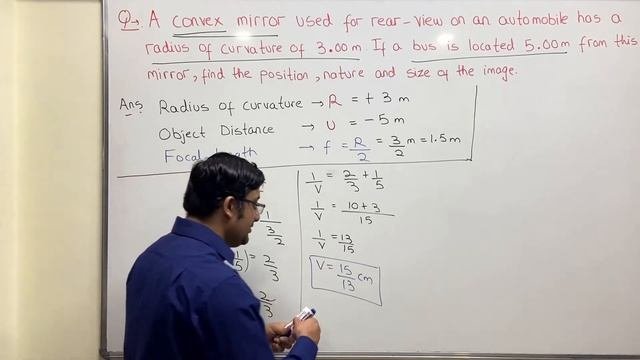 Q→. A convex mirror used for rear-view on an automobile has a
radius of curvature of 3.00m. If a bus is located 5.00m from this
mirror, find the position, nature and size of the image.
Ans: Radius of curvature → R = + 3 m
Object Distance → U = - 5m
Focal → f = R/2 = 3/2 m = 1.5m
1/V = 2/3 + 1/5
1/V = 10+3/15
1/V = 13/15
V = 15/13 cm
1/(3/2)
1/5) = 2/3
2/3